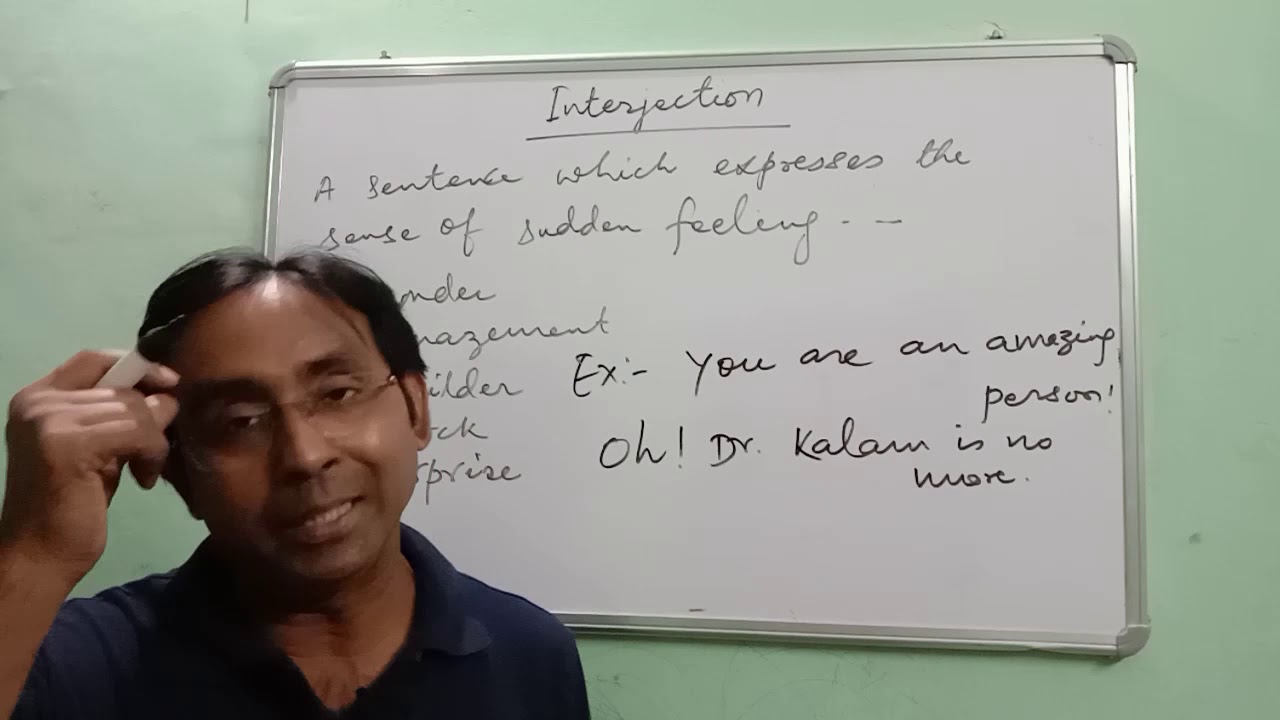 Interjection
A sentence which expresses the
sense of sudden feeling - -
nder
mazement
ilder
ck
rprise
Ex:- You are an amazing
person!
Oh! Dr. Kalam is no
more.